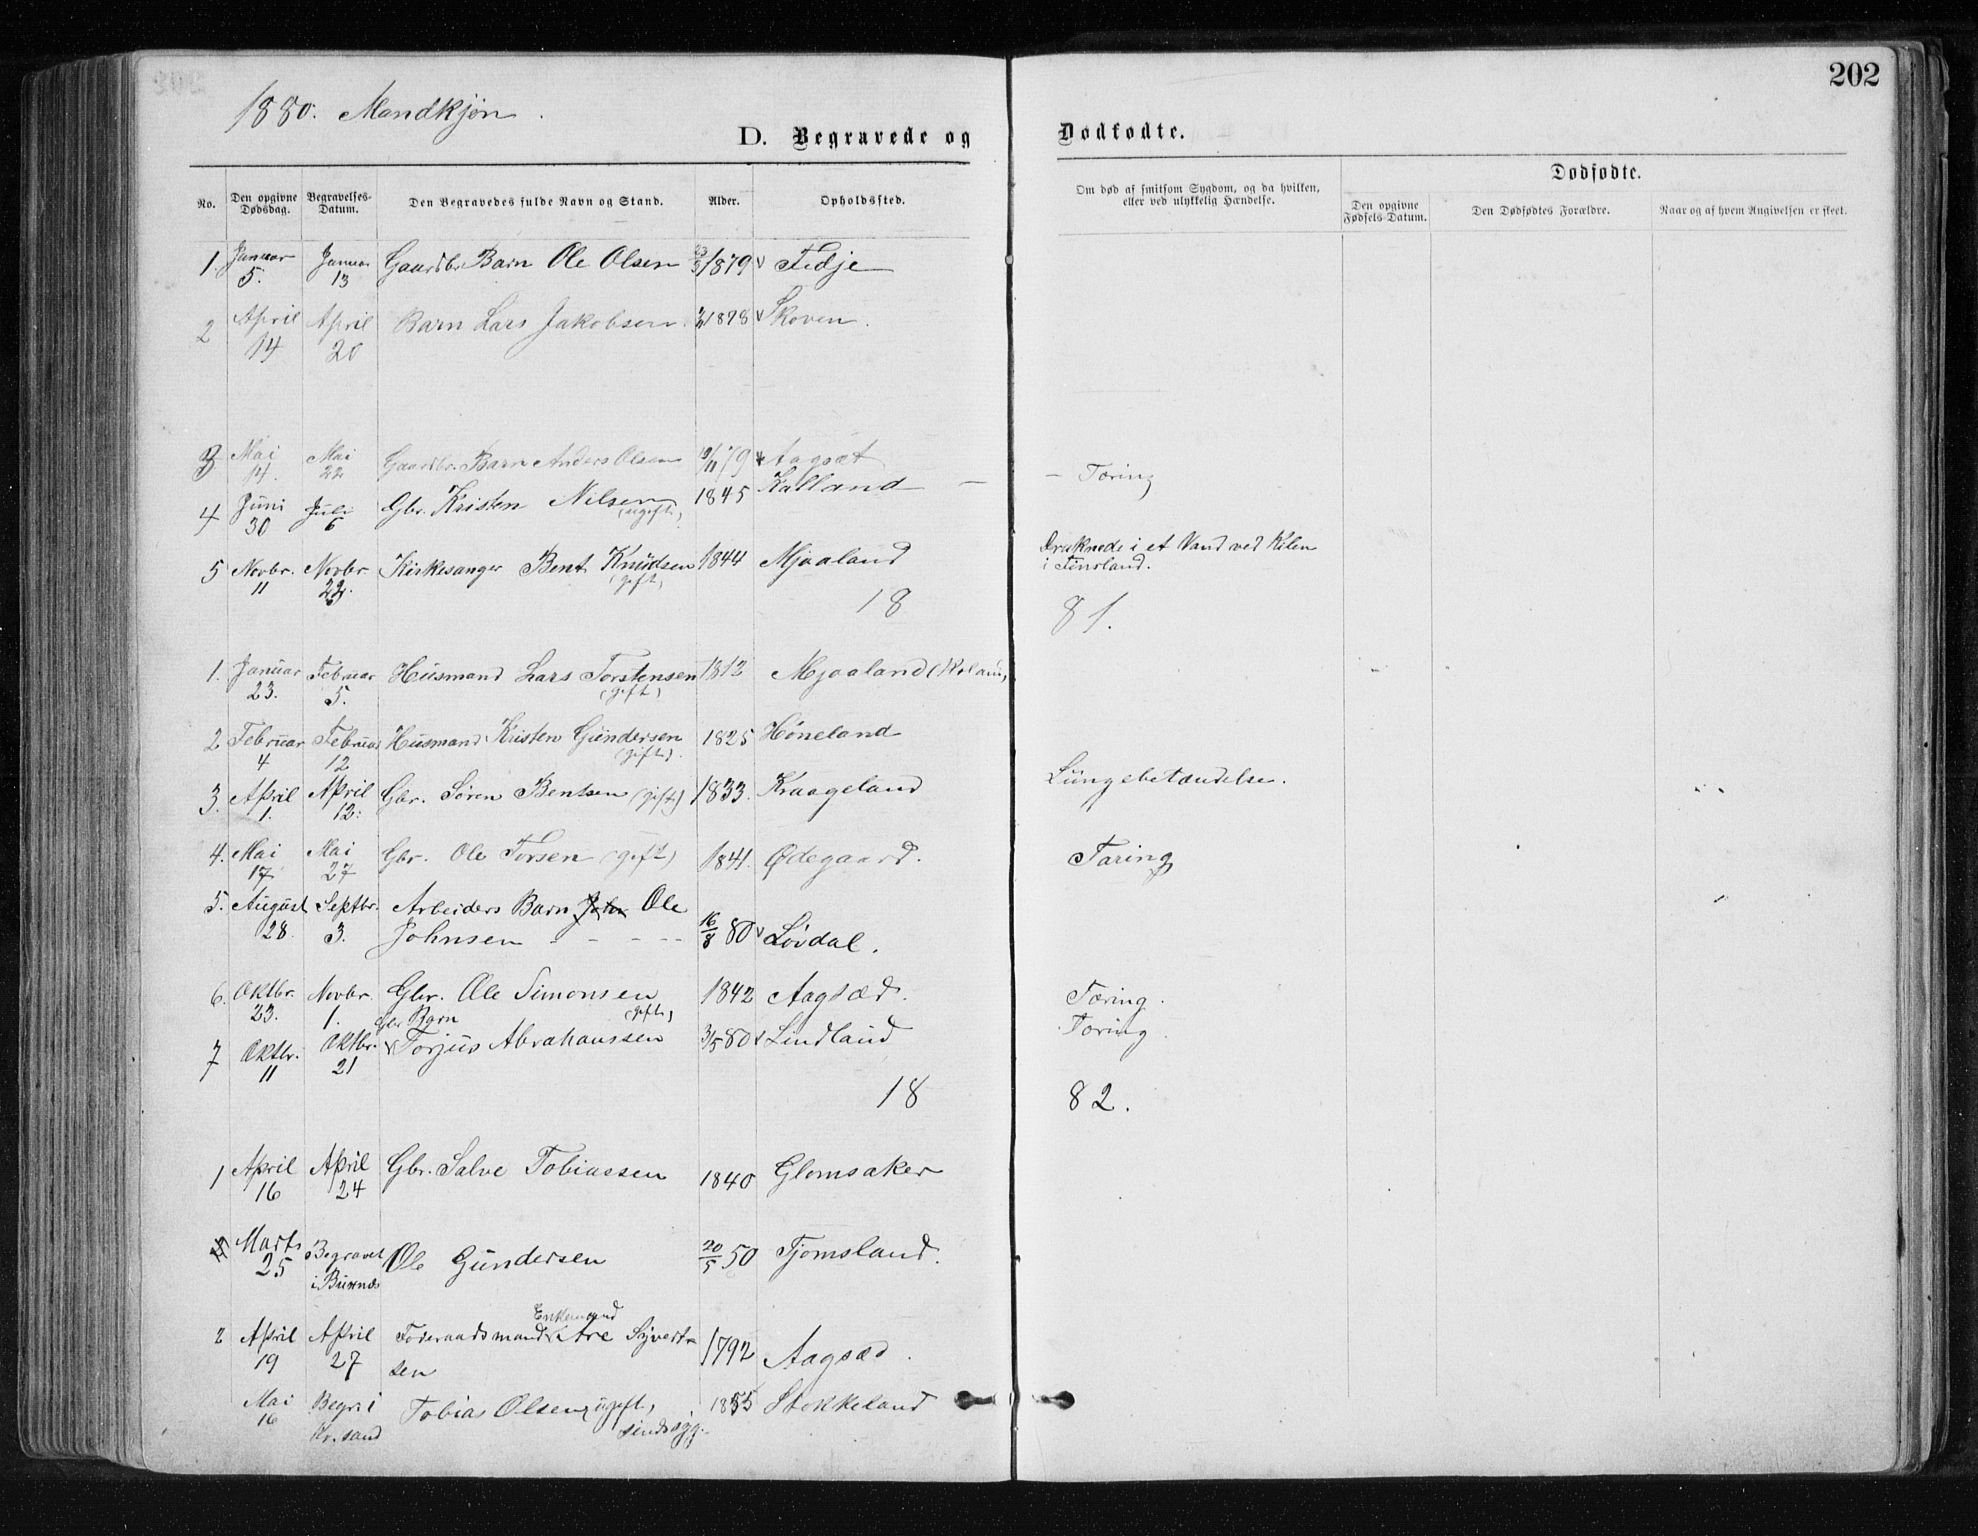 202
1880. Mandkjøn.
D. Begravede og Dødfødte.
No. Den opgivne Dødsdag. Begravelses-Datum. Den Begravedes fulde Navn og Stand. Alder. Opholdssted. Om død af smitsom Sygdom, og da hvilken, eller ved ulykkelig Hændelse. Dødfødte.
Den opgivne Fødsels-Datum. Den Dødfødtes Forældre. Naar og af hvem Angivelsen er skeet.
1. Januar 5. Januar 13 Gaardbr. Barn Ole Olsen 1879 Fidje
2 April 14 April 20 Barn Lars Jakobsen 1878 Skoven.
3 Mai 14. Mai 22 Gaardbr. Barn Anders Olsen 79 Aagsæt
4 Juni 30 Juli 6 Gbr. Kristen Nilsen (ugift) 1845 Kalland — – Tæring
5 Novbr. 11 Novbr. 22. Kirkesanger Bent Knudsen (gift) 1844 Mjaaland Druknede i et Vand ved Kilen i Finsland.
18 81.
1. Januar 23. Februar 5. Husmand Lars Torstensen (gift) 1812 Mjaaland
2 Februar 4 Februar 12 Husmand Kristen Gundersen (gift). 1825 Høneland
3. April 1. April 12. Gbr. Søren Bentsen (gift) 1833. Kraageland Lungebetændelse.
4. Mai 17 Mai 27 Gbr. Ole Torsen (gift) 1841. Ødegaard. Tæring
5. August 28. Septbr. 3. Arbeiders Barn John Ole
Johnsen 16/8 80 Løvdal.
6. Oktbr. 23. Novbr. 1. Gbr. Ole Simonsen (gift) 1842 Aagsæd. Tæring.
Gbr Barn
7 Oktbr. 11 Oktbr. 21 Torjus Abrahamssen 3/5 80 Lindland Tæring
18 82.
1 April 16 April 24 Gbr. Salve Tobiassen 1840 Glomsaker
Marts 25 Begravet i Ole Gundersen 20/5 50 Tjomsland.
Enkemand
2 April 19 April 27 Føderaadsmand Are Syvert-
sen 1792 Aagsæd.
Mai 16 Begr. i Kr.sand Tobias Olsen, ugift, sindssyg. 1855 Stokkeland